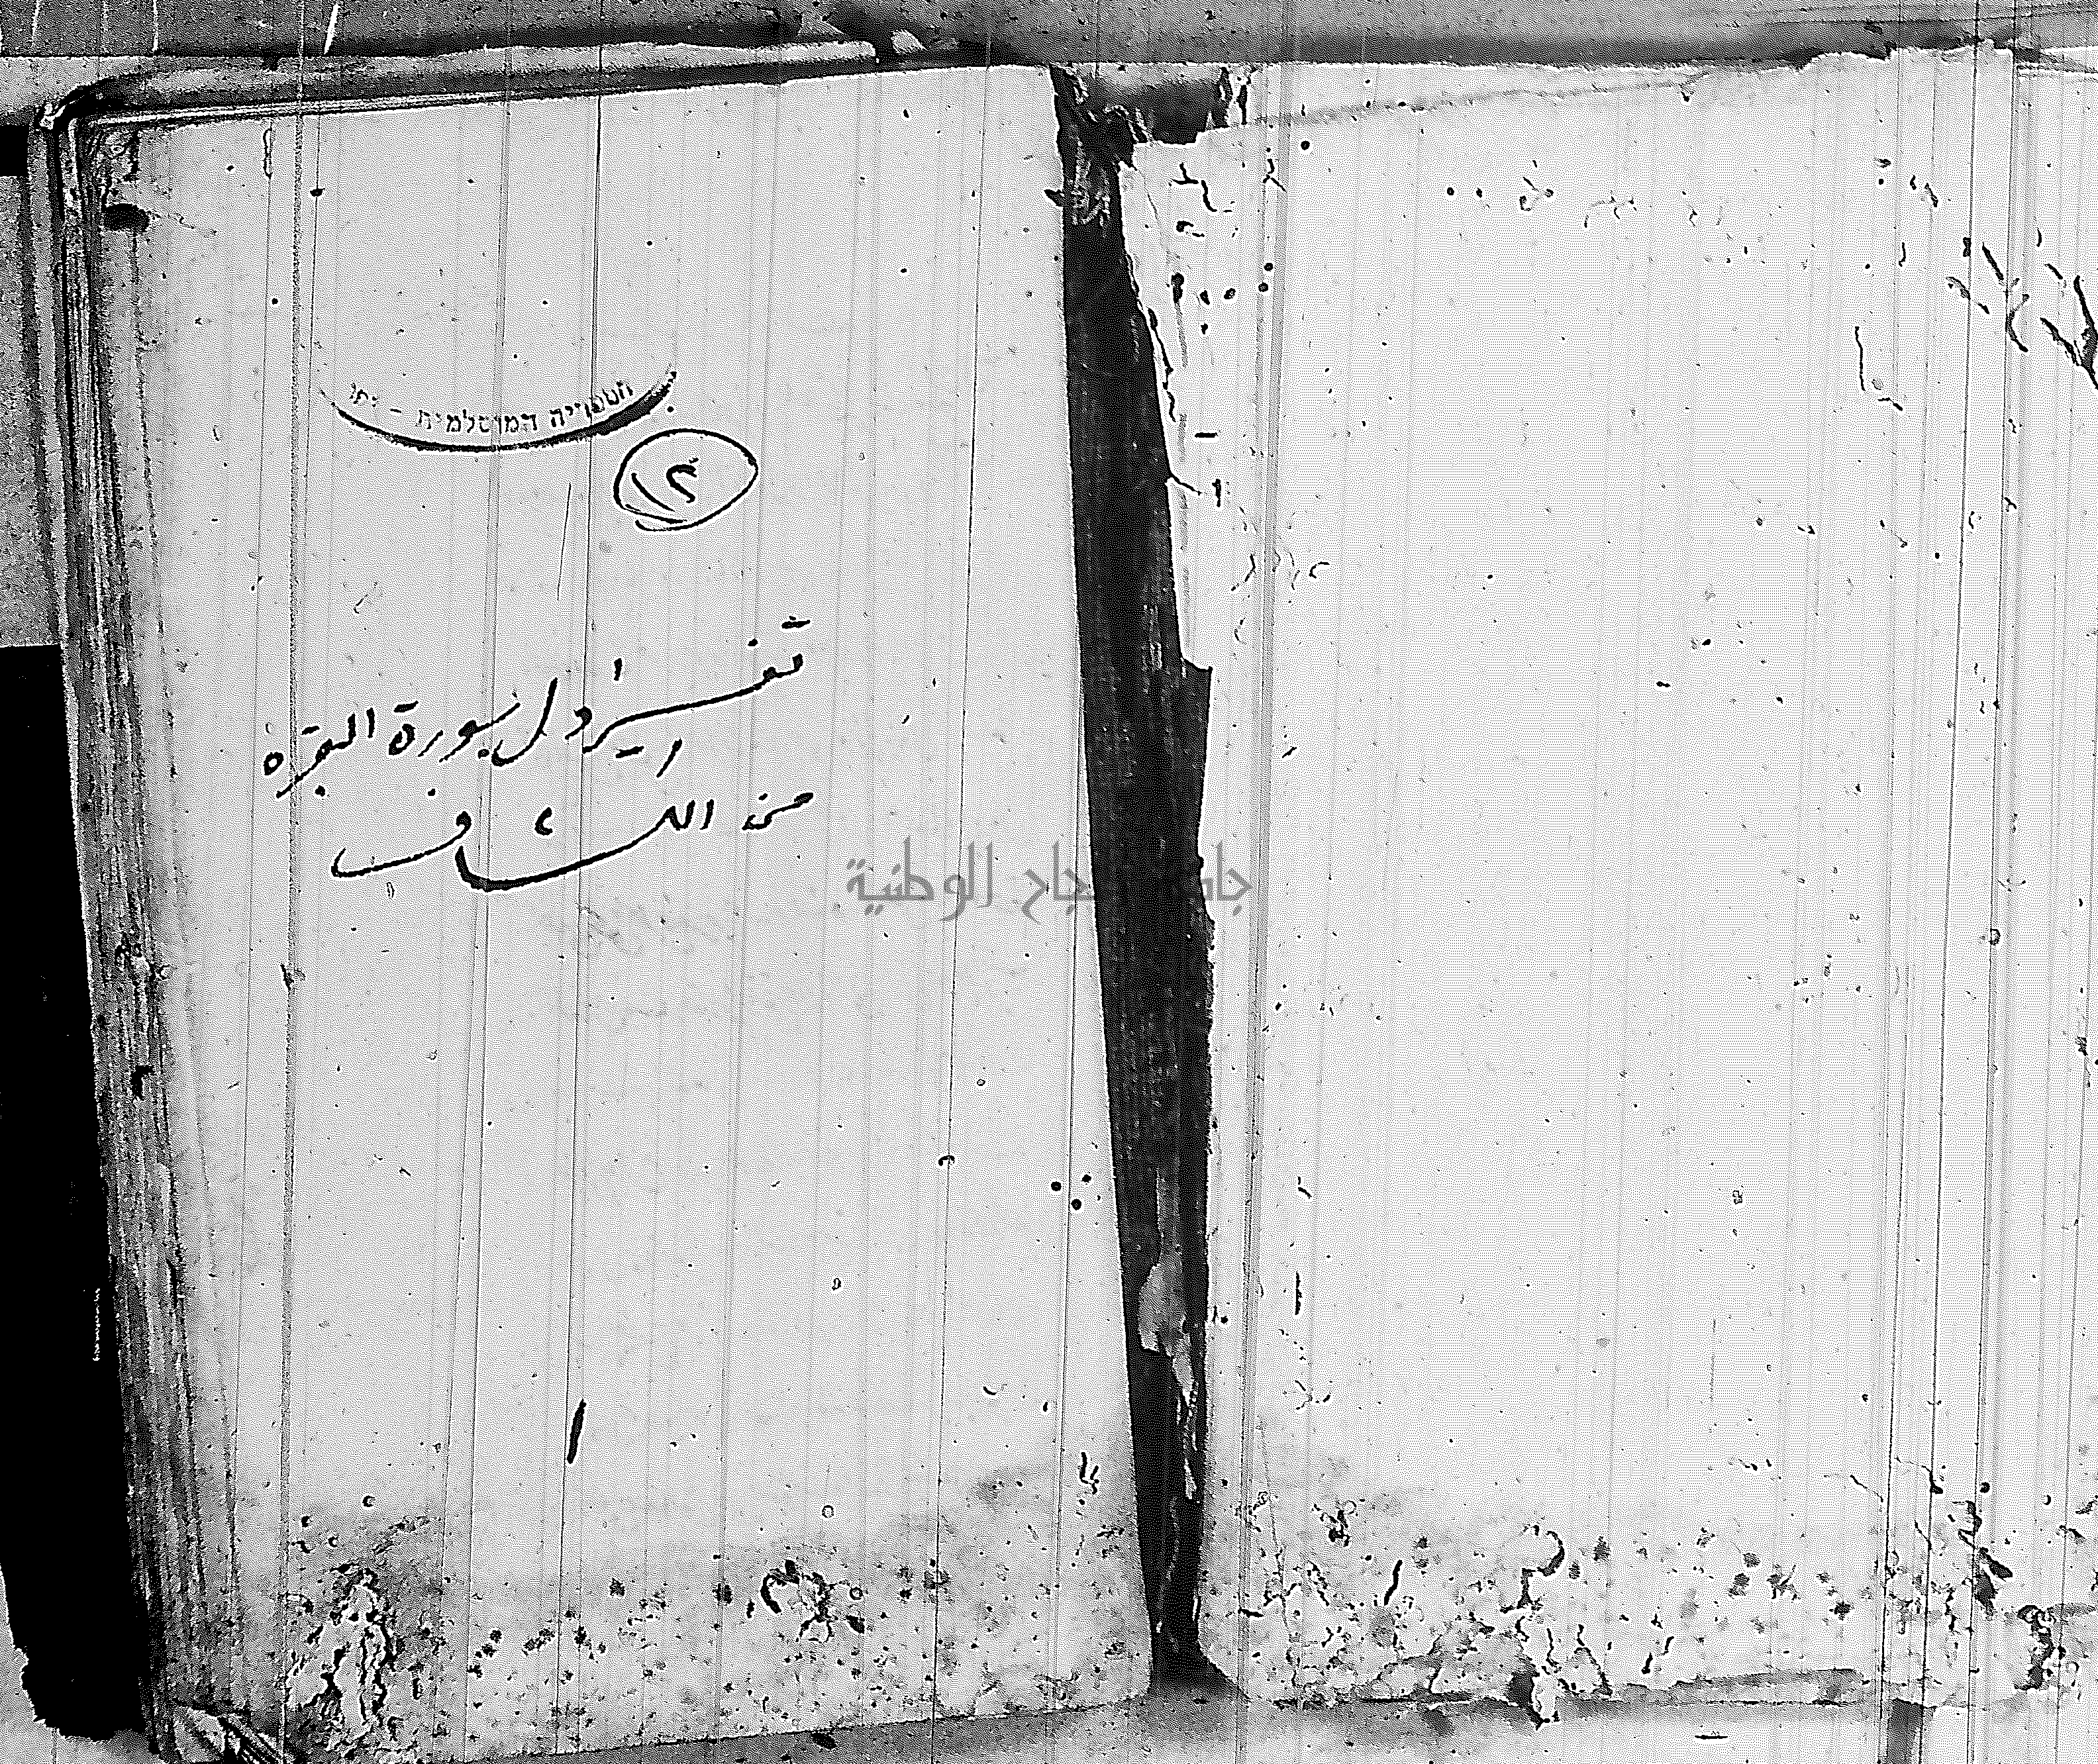 הספריה המוסלמית - יפו
١٣
تفسير اول سورة البقره
من الكشاف
جامعة النجاح الوطنية